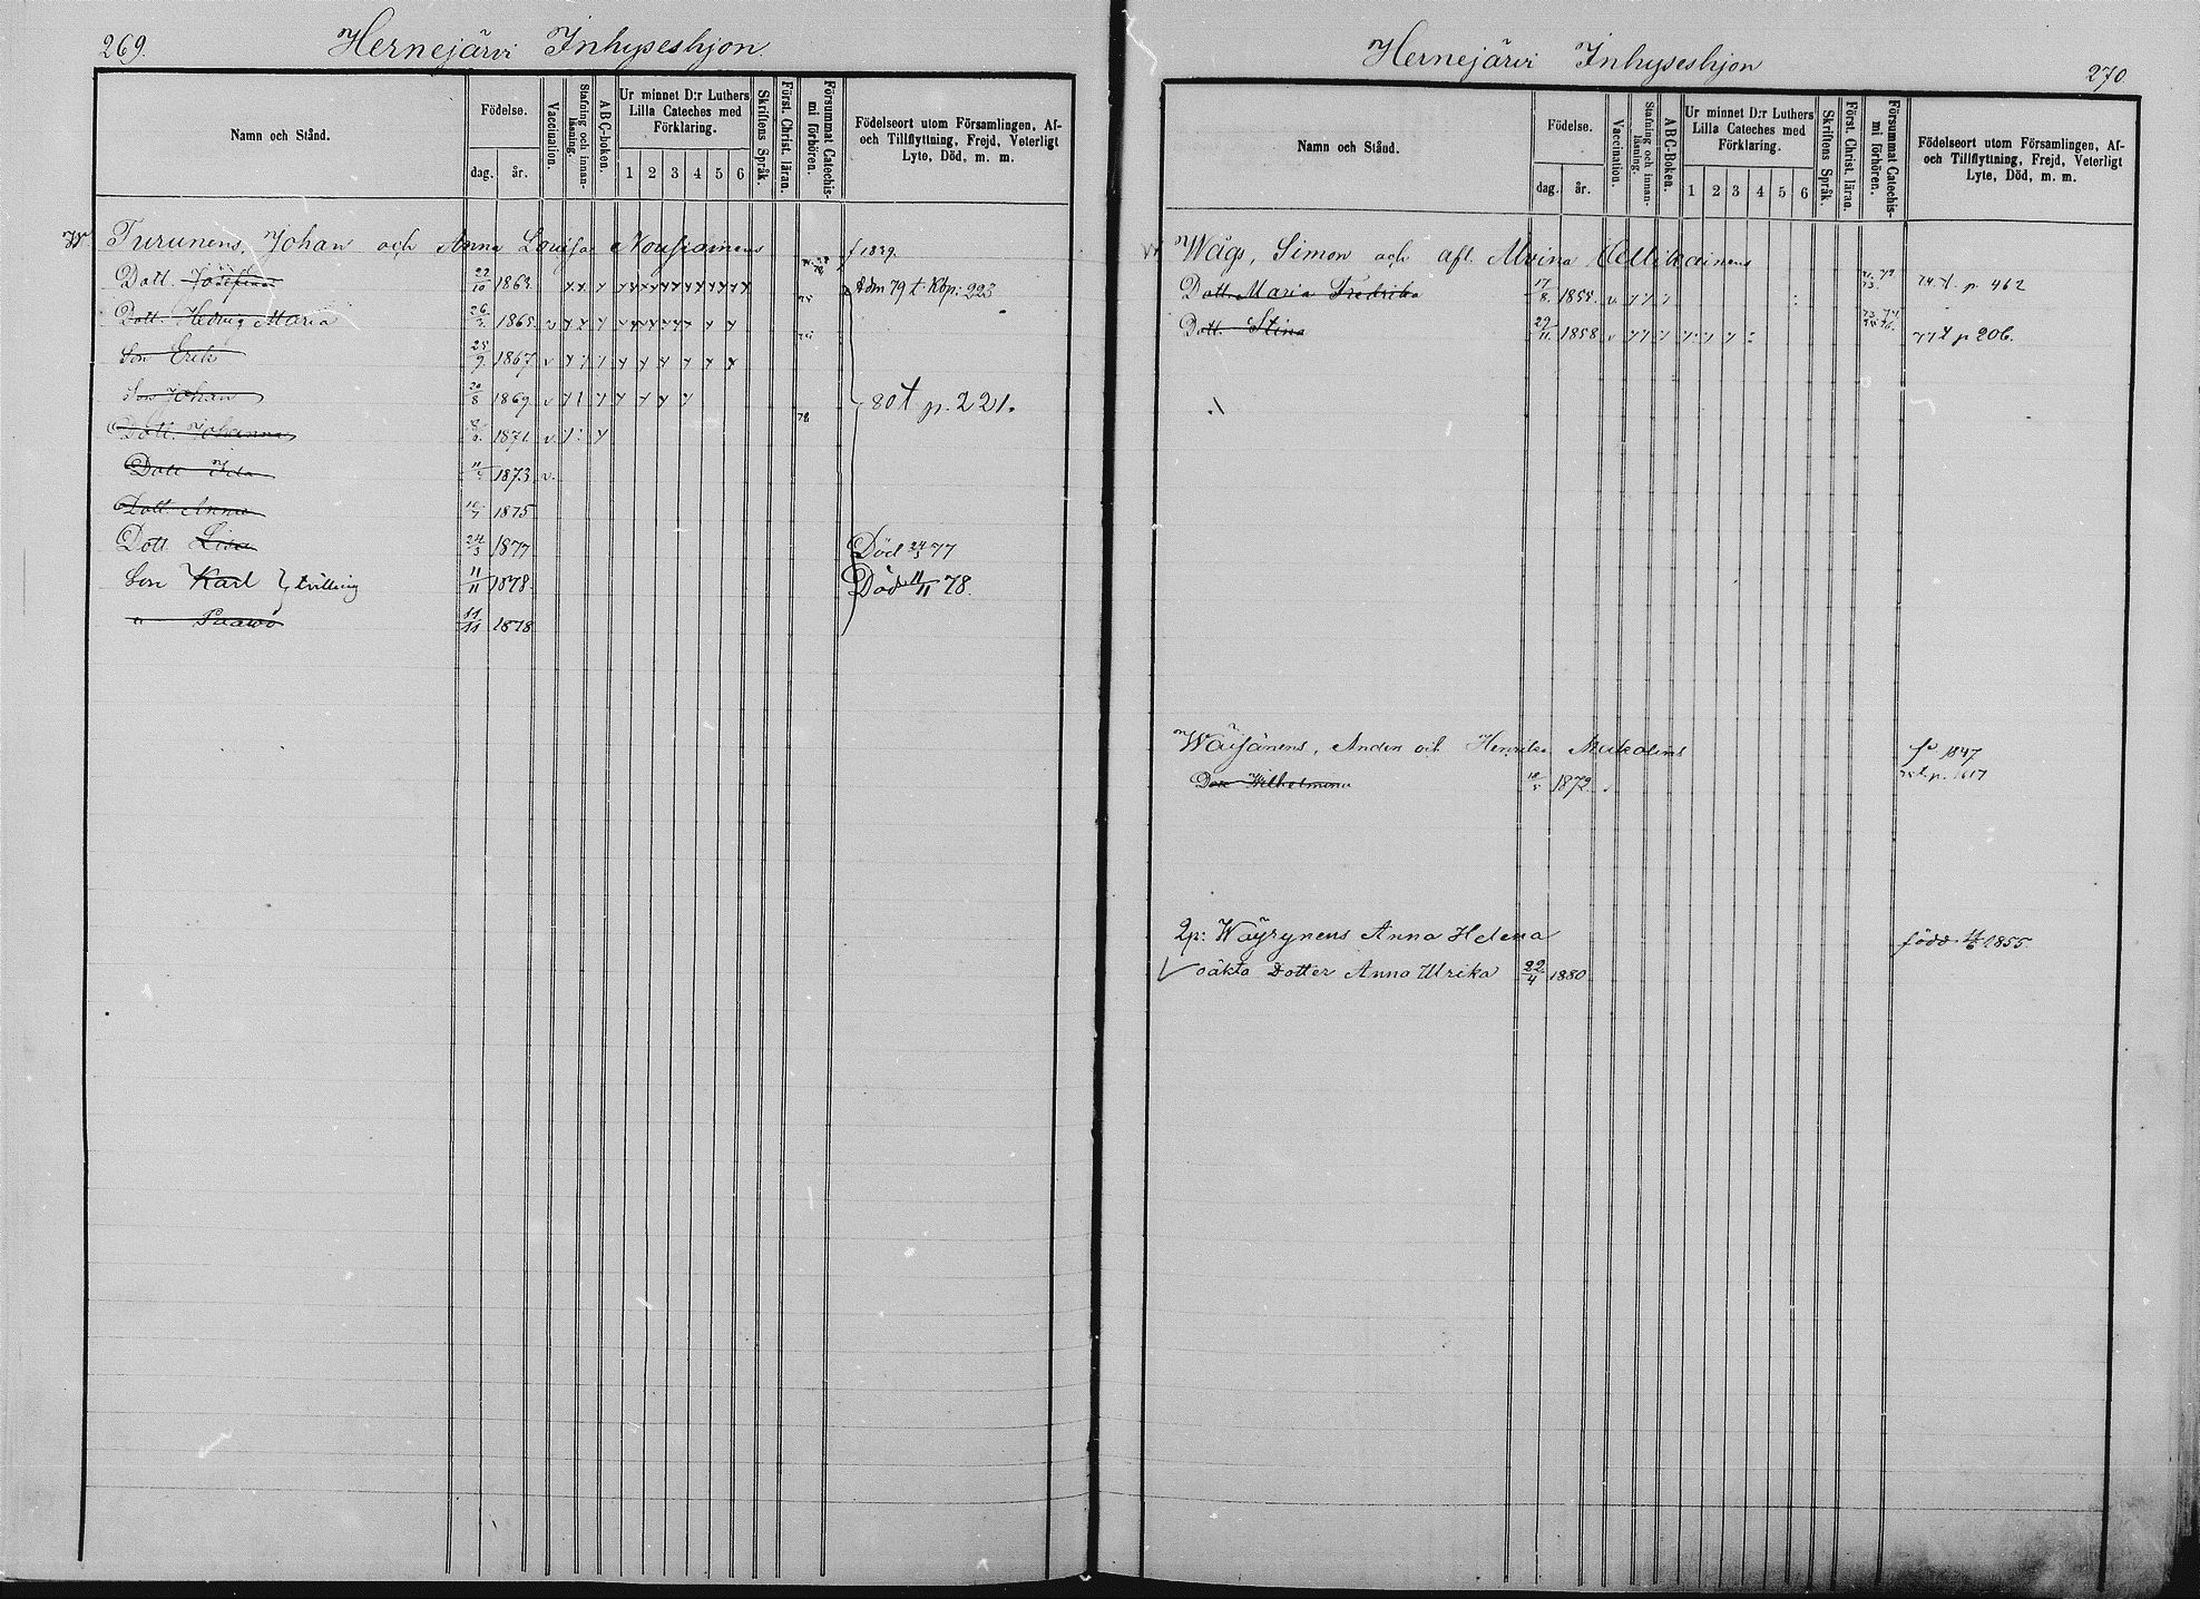 269.
Hernejärvi Inhyseshjon.
Namn och Stånd.
Födelse.
dag. år.
Vaccination.
Stafning och innanläsning.
ABC-boken.
Ur minnet D:r Luthers Lilla Cateches med Förklaring.
1 2 3 4 5 6
Skriftens Språk.
Först. Christ. läran.
Försummat Catechismi förhören.
Födelseort utom Församlingen, Af- och Tillflyttning, Frejd, Veterligt Lyte, Död, m. m.
Turunens, Johan och Anna Lovisa Nousiainens f 1839.
Dott. Josefina 22/10 1863. 79 t. Kbp: 223
Dott. Hedvig Maria 1865 v
Son Erik 25/9 1867 v
Son Johan 20/8 1869 v 80 t p. 221.
Dott. Johanna 1871 v
Dott Ida 1873 v.
Dott. Anna 1875
Dott Lisa 24/3 1877 Död 24/3 77
Son Karl } tvilling 11/11 1878. Död 11/11 78.
" Paavo 11/11 1878
Hernejärvi Inhyseshjon
270.
Namn och Stånd.
Födelse.
dag. år.
Vaccination.
Stafning och innanläsning.
ABC-Boken.
Ur minnet D:r Luthers Lilla Cateches med Förklaring.
1 2 3 4 5 6
Skriftens Språk.
Först. Christ. läran.
Försummat Catechismi förhören.
Födelseort utom Församlingen, Af- och Tillflyttning, Frejd, Veterligt Lyte, Död, m. m.
Wågs, Simon och afl.
Dott. Maria Fredrika 17/8. 1855. v 74 t. p 462
Dott. Stina 29/11. 1858. v 77 t p 206.
Wäisänens, Anders och Henrika 1847
Dott Wilhelmina 1872.
Qp: Wäyrynens Anna Helena född 1855.
oäkta Dotter Anna Ulrika 22/4 1880